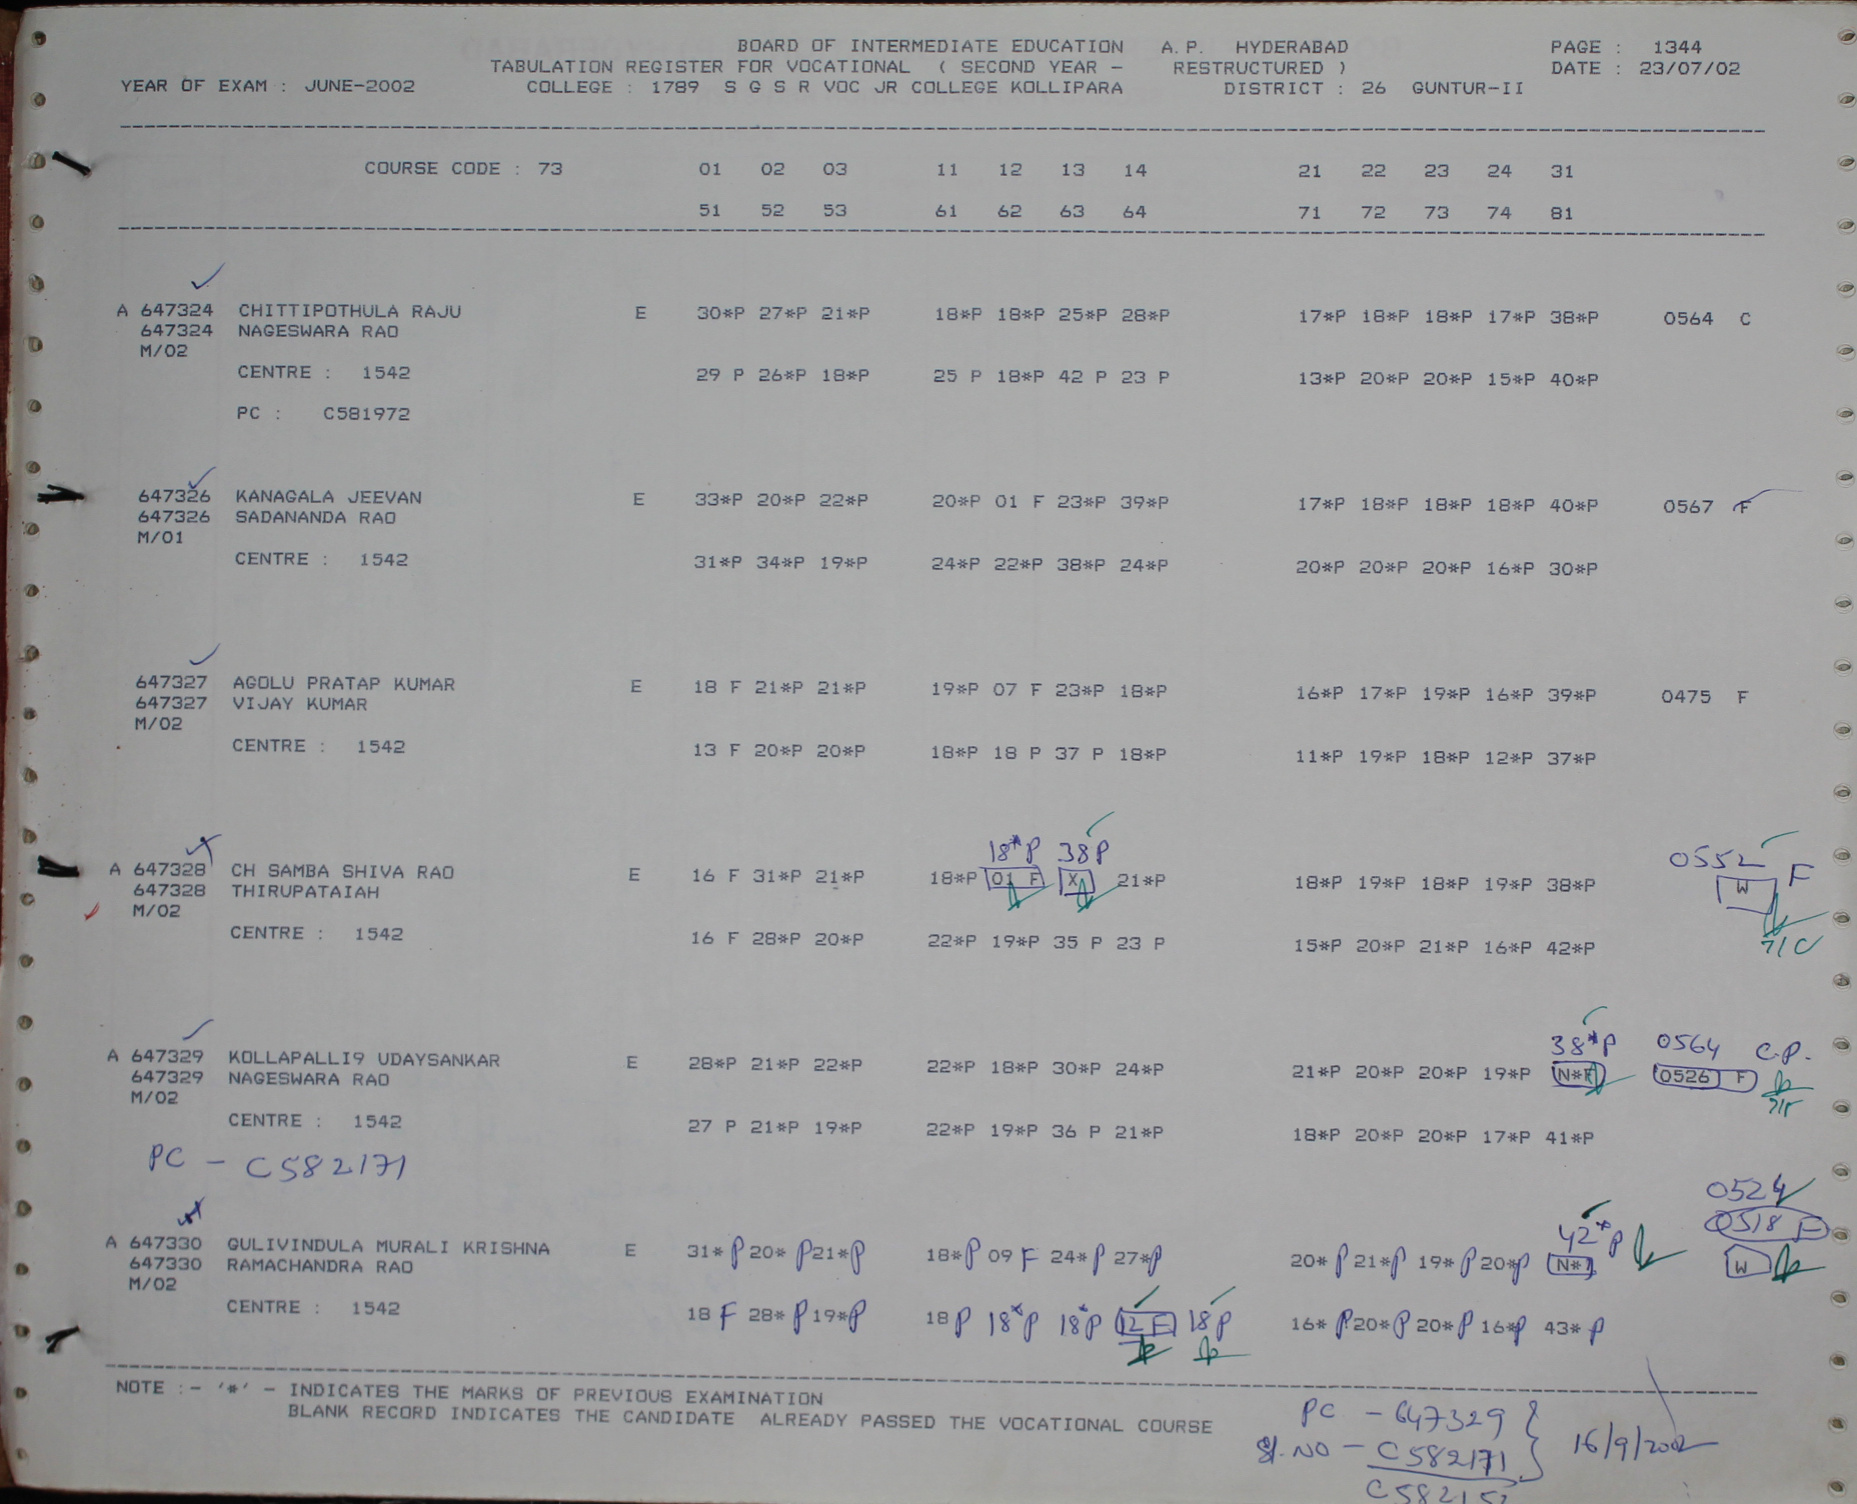 BOARD OF INTERMEDIATE EDUCATION A.P. HYDERABAD PAGE : 1344
TABULATION REGISTER FOR VOCATIONAL ( SECOND YEAR - RESTRUCTURED ) DATE : 23/07/02
YEAR OF EXAM : JUNE-2002 COLLEGE : 1789 S G S R VOC JR COLLEGE KOLLIPARA DISTRICT : 26 GUNTUR-II
COURSE CODE : 73 01 02 03 11 12 13 14 21 22 23 24 31
51 52 53 61 62 63 64 71 72 73 74 81
A 647324 CHITTIPOTHULA RAJU E 30*P 27*P 21*P 18*P 18*P 25*P 28*P 17*P 18*P 18*P 17*P 38*P 0564 C
647324 NAGESWARA RAO
M/02
CENTRE : 1542 29 P 26*P 18*P 25 P 18*P 42 P 23 P 13*P 20*P 20*P 15*P 40*P
PC : C581972
647326 KANAGALA JEEVAN E 33*P 20*P 22*P 20*P 01 F 23*P 39*P 17*P 18*P 18*P 18*P 40*P 0567 F
647326 SADANANDA RAO
M/01
CENTRE : 1542 31*P 34*P 19*P 24*P 22*P 38*P 24*P 20*P 20*P 20*P 16*P 30*P
647327 AGOLU PRATAP KUMAR E 18 F 21*P 21*P 19*P 07 F 23*P 18*P 16*P 17*P 19*P 16*P 39*P 0475 F
647327 VIJAY KUMAR
M/02
CENTRE : 1542 13 F 20*P 20*P 18*P 18 P 37 P 18*P 11*P 19*P 18*P 12*P 37*P
18*P 38P 0552 F
A 647328 CH SAMBA SHIVA RAO E 16 F 31*P 21*P 18*P 01 F X 21*P 18*P 19*P 18*P 19*P 38*P W
647328 THIRUPATAIAH
M/02
CENTRE : 1542 16 F 28*P 20*P 22*P 19*P 35 P 23 P 15*P 20*P 21*P 16*P 42*P
38*P 0564 C.P.
A 647329 KOLLAPALLI9 UDAYSANKAR E 28*P 21*P 22*P 22*P 18*P 30*P 24*P 21*P 20*P 20*P 19*P N*F 0526 F
647329 NAGESWARA RAO
M/02
CENTRE : 1542 27 P 21*P 19*P 22*P 19*P 36 P 21*P 18*P 20*P 20*P 17*P 41*P
PC - C582171
0524
42*P 0518 F
A 647330 GULIVINDULA MURALI KRISHNA E 31*P 20*P 21*P 18*P 09 F 24*P 27*P 20*P 21*P 19*P 20*P N* W
647330 RAMACHANDRA RAO
M/02
CENTRE : 1542 18 F 28*P 19*P 18 P 18*P 18*P 12 F 18P 16*P 20*P 20*P 16*P 43*P
NOTE :- '*' - INDICATES THE MARKS OF PREVIOUS EXAMINATION
BLANK RECORD INDICATES THE CANDIDATE ALREADY PASSED THE VOCATIONAL COURSE
PC - 647329
Sl. NO - C582171 16/9/2002